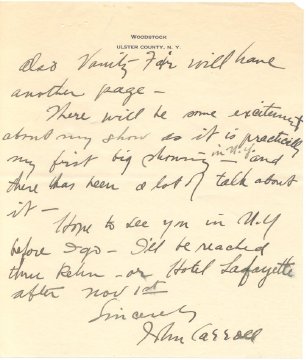 WOODSTOCK
ULSTER COUNTY, N. Y.
also Vanity Fair will have
another page –
There will be some excitement
about my show as it is practically
my first big showing in N.Y. – and
there has been a lot of talk about
it –
Hope to see you in N.Y
before I go – I'll be reached
thru Rehn – or Hotel Lafayette
after Nov 1st
Sincerely
John Carroll